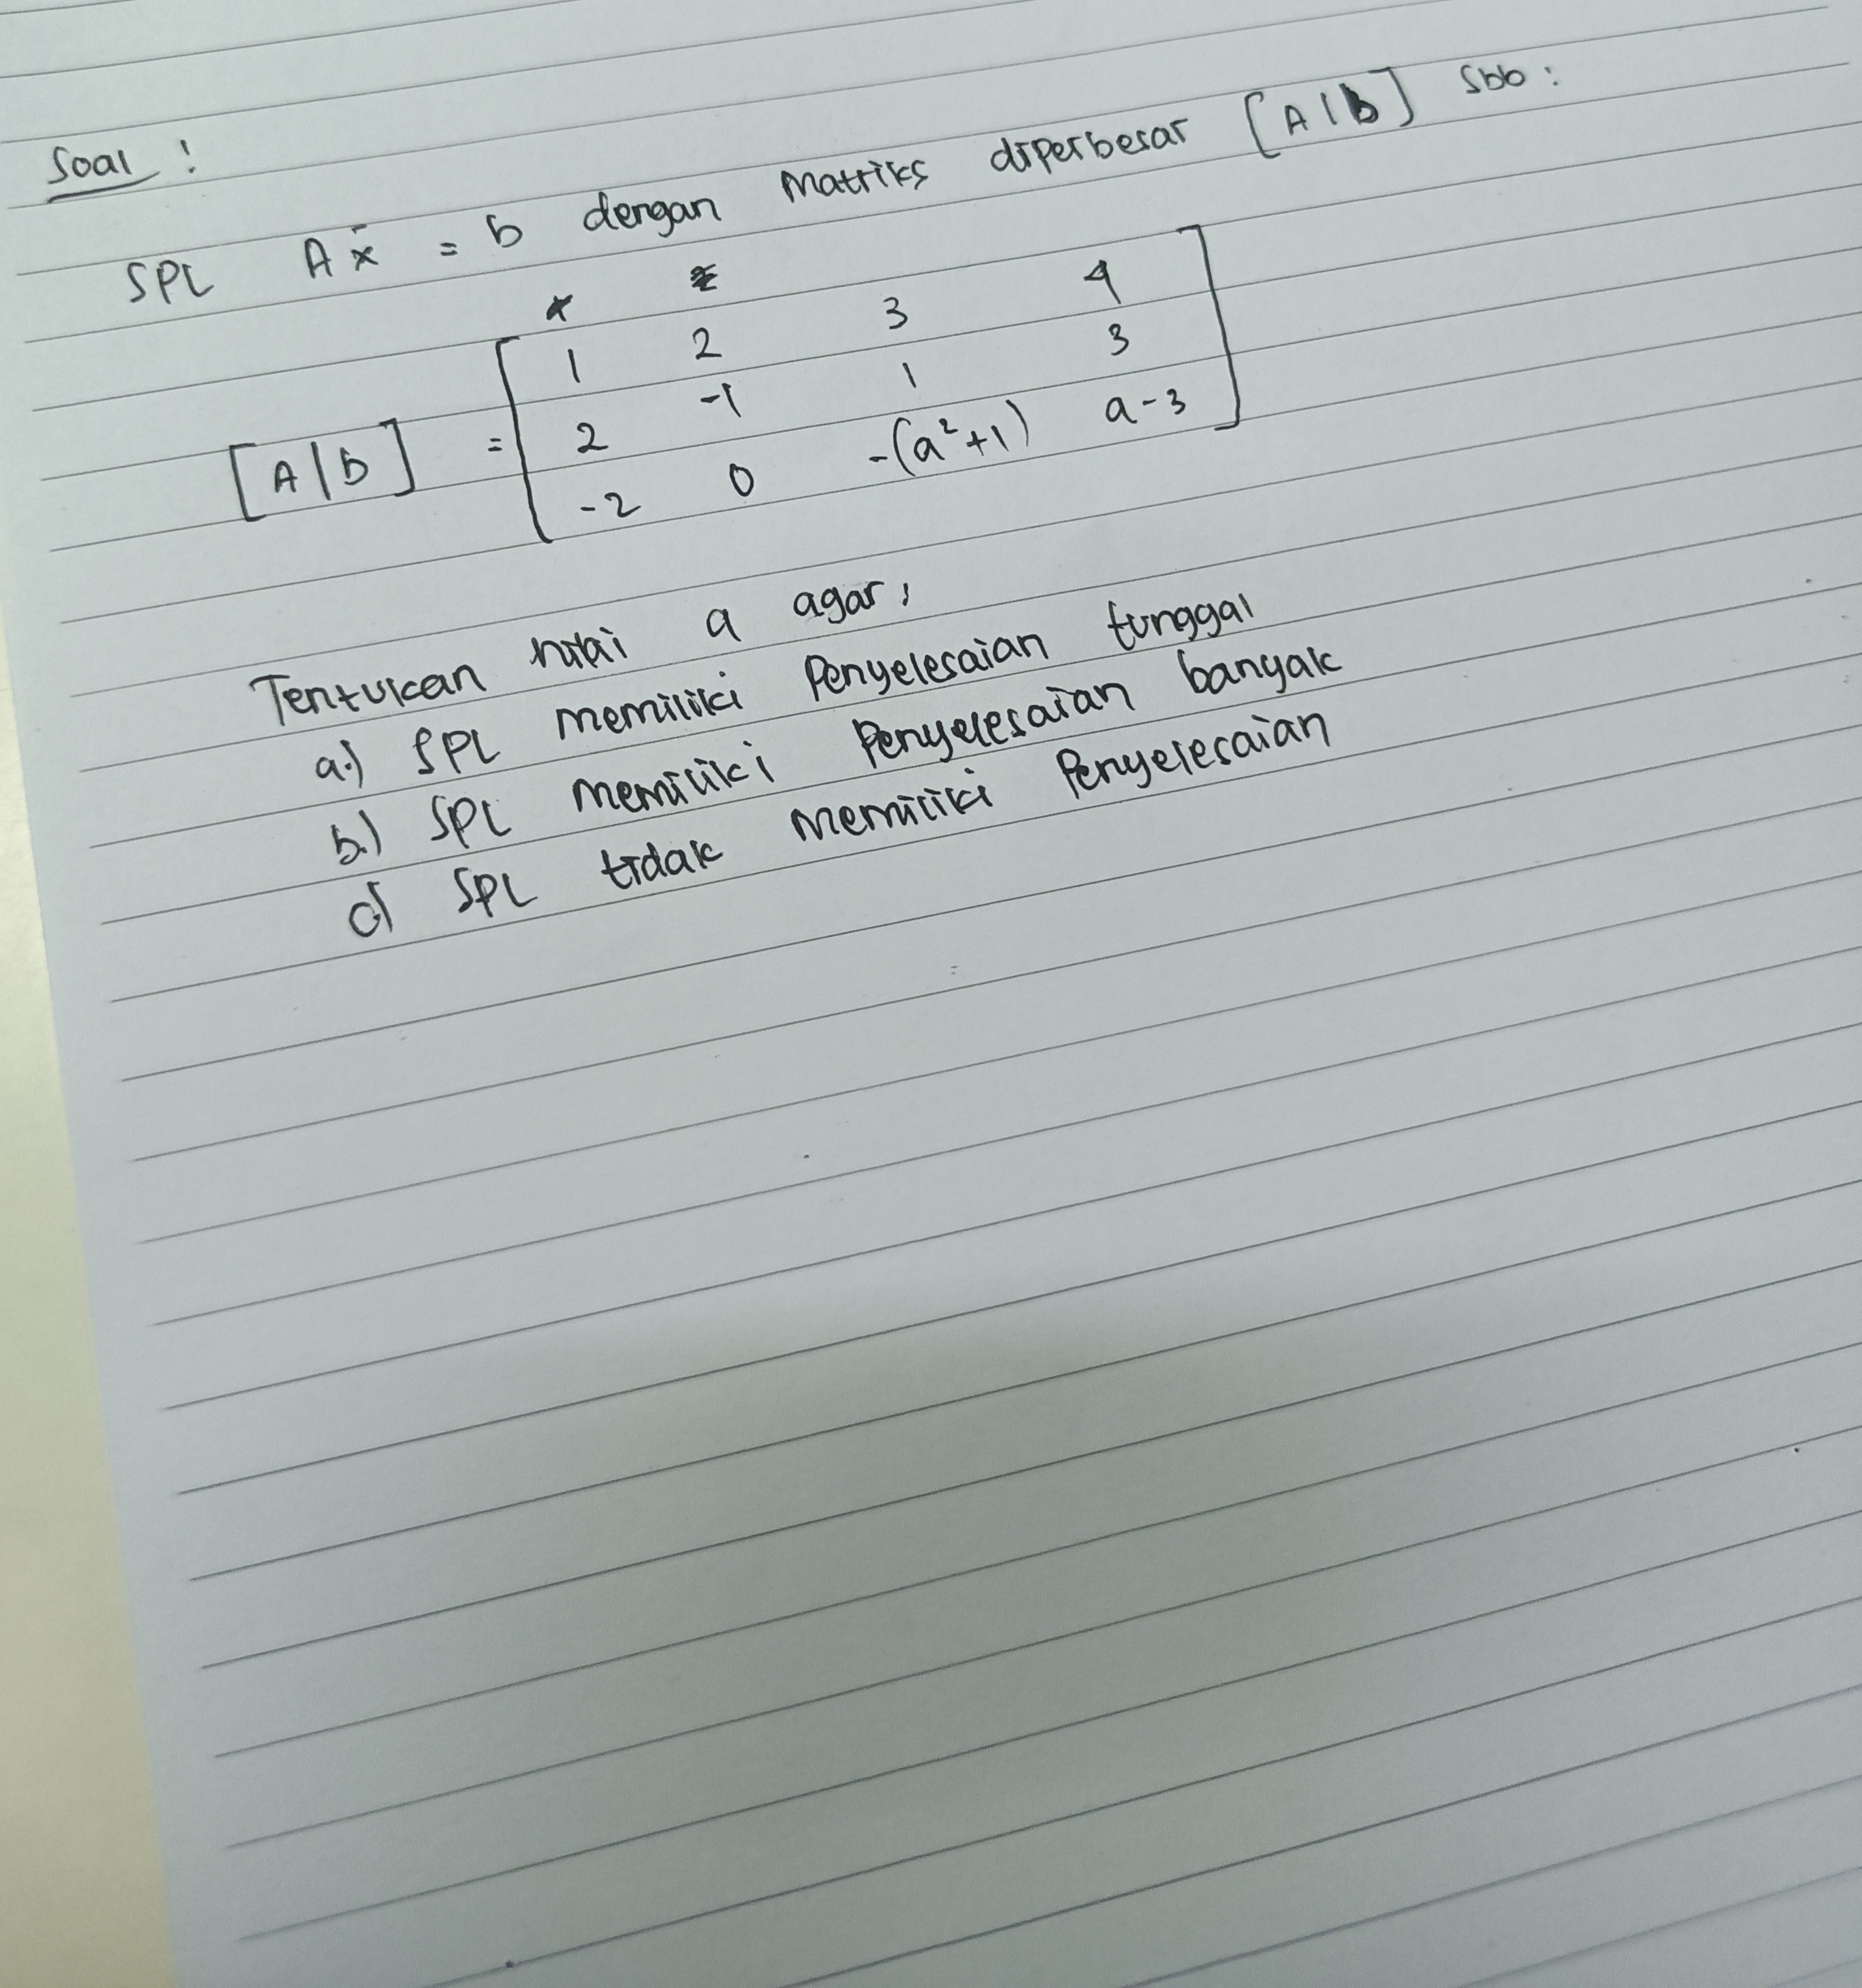 Soal !
SPL A x̄ = b dengan matriks diperbesar [A|b] sbb :
1 2 3 4
[A|b] = 2 -1 1 3
-2 0 -(a²+1) a-3
Tentukan nilai a agar,
a.) SPL memiliki Penyelesaian tunggal
b.) SPL memiliki Penyelesaian banyak
c) SPL tidak memiliki Penyelesaian